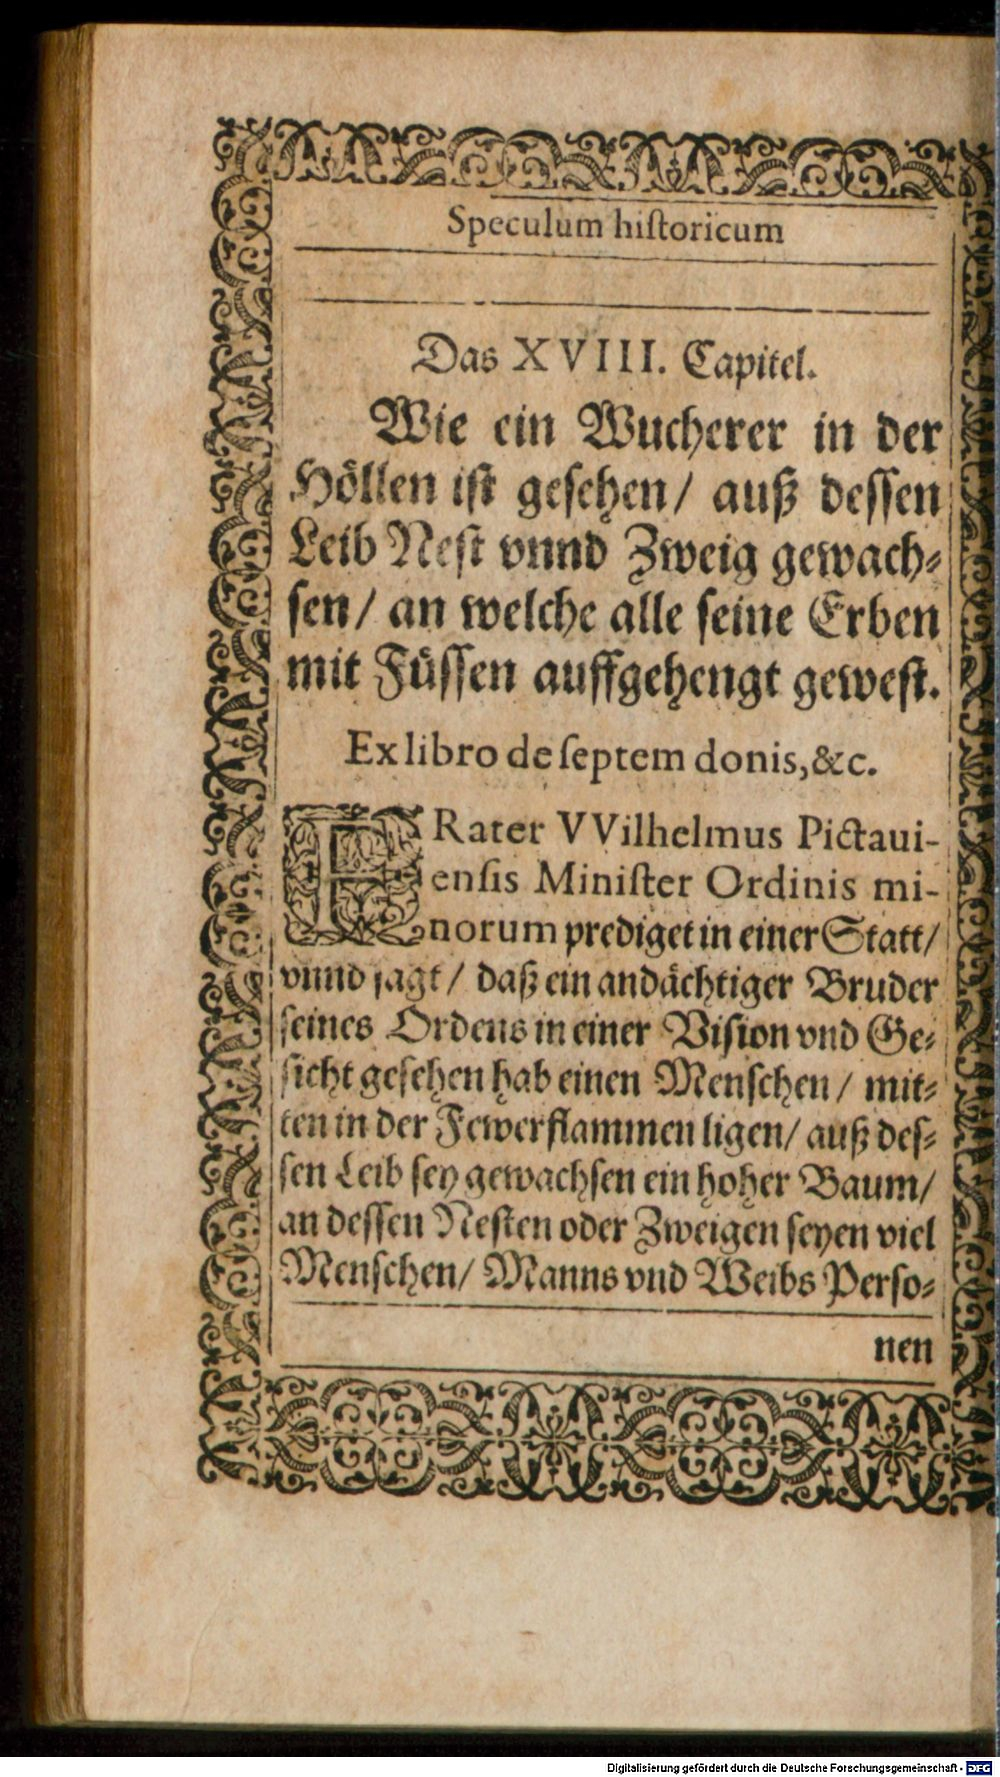 Speculum hiſtoricum
Das XVIII. Capitel.
Wie ein Wucherer in der
Höllen iſt geſehen/ auß deſſen
Leib Neſt vnnd Zweig gewach⸗
ſen/ an welche alle ſeine Erben
mit Füſſen auffgehengt geweſt.
Ex libro de ſeptem donis, &c.
FRater VVilhelmus Pictaui-
enſis Miniſter Ordinis mi-
norum prediget in einer Statt/
vnnd ſagt/ daß ein andächtiger Bruder
ſeines Ordens in einer Viſion vnd Ge⸗
ſicht geſehen hab einen Menſchen/ mit⸗
ten in der Fewerflammen ligen/ auß deſ⸗
ſen Leib ſey gewachſen ein hoher Baum/
an deſſen Neſten oder Zweigen ſeyen viel
Menſchen/ Manns vnd Weibs Perſo⸗
nen
Digitalisierung gefördert durch die Deutsche Forschungsgemeinschaft - DFG